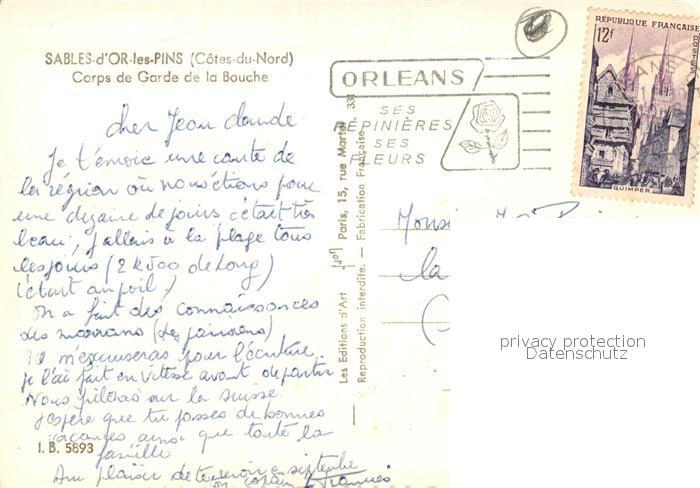 SABLES-d'OR-les-PINS (Côtes-du-Nord)
Corps de Garde de la Bouche
cher Jean claude
Je t'envoie une carte de
la région où nous étions pour
une dizaine de jours c'était très
beau, j'allais à la plage tous
les jours (2 k 500 de long)
(c'était au poil)
On a fait des connaissances
des marrans (des parisiens)
Tu m'excuseras pour l'écriture
je l'ai fait en vitesse avant de partir
Nous filerons sur la suisse.
J'espère que tu passes de bonnes
vacances ainsi que toute la
famille
Au plaisir de te revoir en septembre
Ton copain Francis
I. B. 5893
Les Editions d'Art Paris, 15, rue Martel 331
Reproduction interdite. — Fabrication Française
ORLEANS
SES
PÉPINIÈRES
SES
FLEURS
RÉPUBLIQUE FRANÇAISE
12f
POSTES
QUIMPER
Monsieur
la
privacy protection
Datenschutz